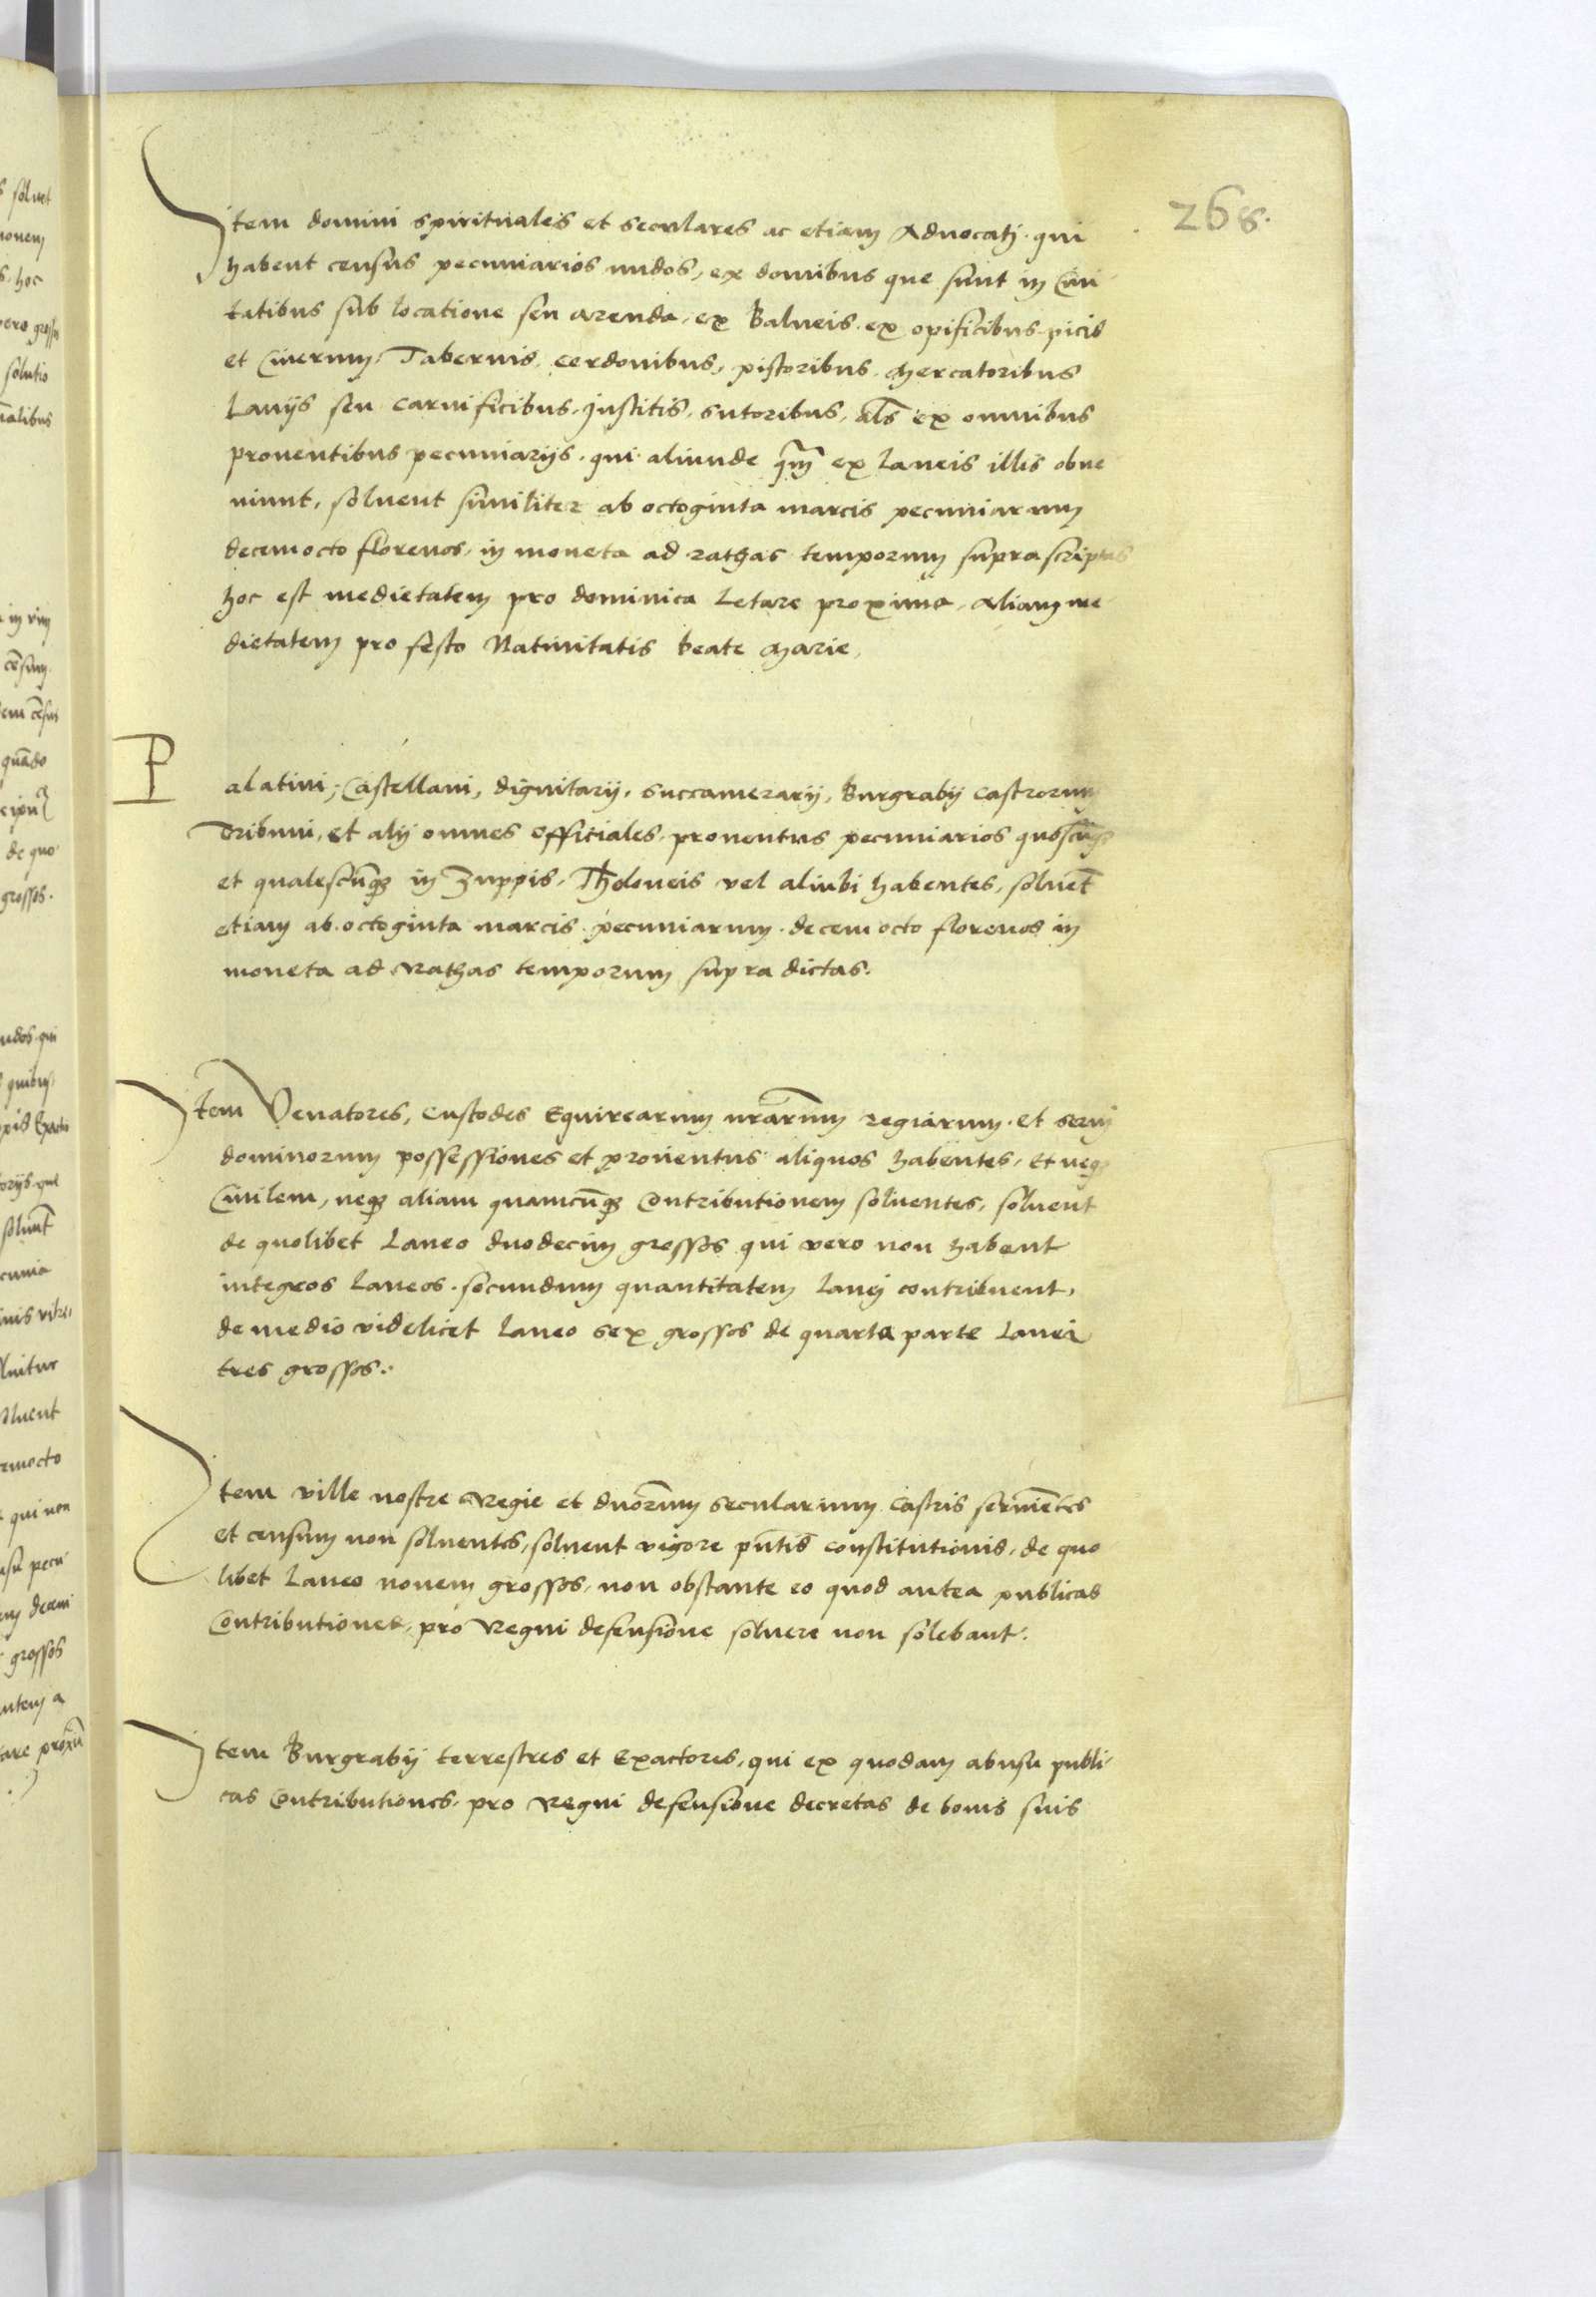 268.
Item domini spirituales et seculares ac etiam Advocatj. qui
habent census pecuniarios nudos, ex domibus que sunt in Civi
tatibus sub locatione seu arenda, ex Balneis. ex opificibus picis
et Cinerum, Tabernis, cerdonibus, pistoribus, Mercatoribus
Lanijs seu carnificibus, Institis, sutoribus, als̄ ex omnibus
prouentibus pecuniarijs. qui aliunde qm̄ ex Laneis illis obue
niunt, soluent similiter ab octoginta marcis pecuniarum
decemocto florenos, in moneta ad rathas temporum suprascriptas
hoc est medietatem pro dominica Letare proxima, aliam me
dietatem pro festo Natiuitatis beate Marie,
Palatini, Castellani, dignitarij, succamerarij, Burgrabij castrorum
Tribuni, et alij omnes officiales, prouentus pecuniarios quoscūq3
et qualescūq3 in Zuppis, Theloneis vel aliubi habentes, soluēt
etiam ab octoginta marcis pecuniarum. decem octo florenos in
moneta ad Rathas temporum supra dictas.
Item Venatores, custodes Equirearum nrārum regiarum. et serui
dominorum possessiones et prouentus aliquos habentes, Et neq3
Ciuilem, neq3 aliam quamcūq3 Contributionem soluentes, soluent
de quolibet Laneo duodecim grossos qui vero non habent
integros Laneos. secundum quantitatem Lanej contribuent,
de medio videlicet Laneo sex grossos de quarta parte Lanei
tres grossos.
Item ville nostre Regie et dnōrum secularium castris seruiētes
et censum non soluentes, soluent vigore pn̄tis constitutionis, de quo
libet Laneo nouem grossos, non obstante eo quod antea publicas
Contributiones, pro Regni defensione soluere non solebant.
Item Burgrabij terrestres et Exactores, qui ex quodam abusu publi
cas Contributiones, pro Regni defensione decretas de bonis suis